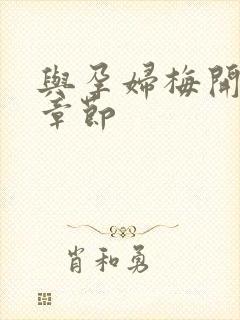 與孕婦梅開
章節
肖和勇